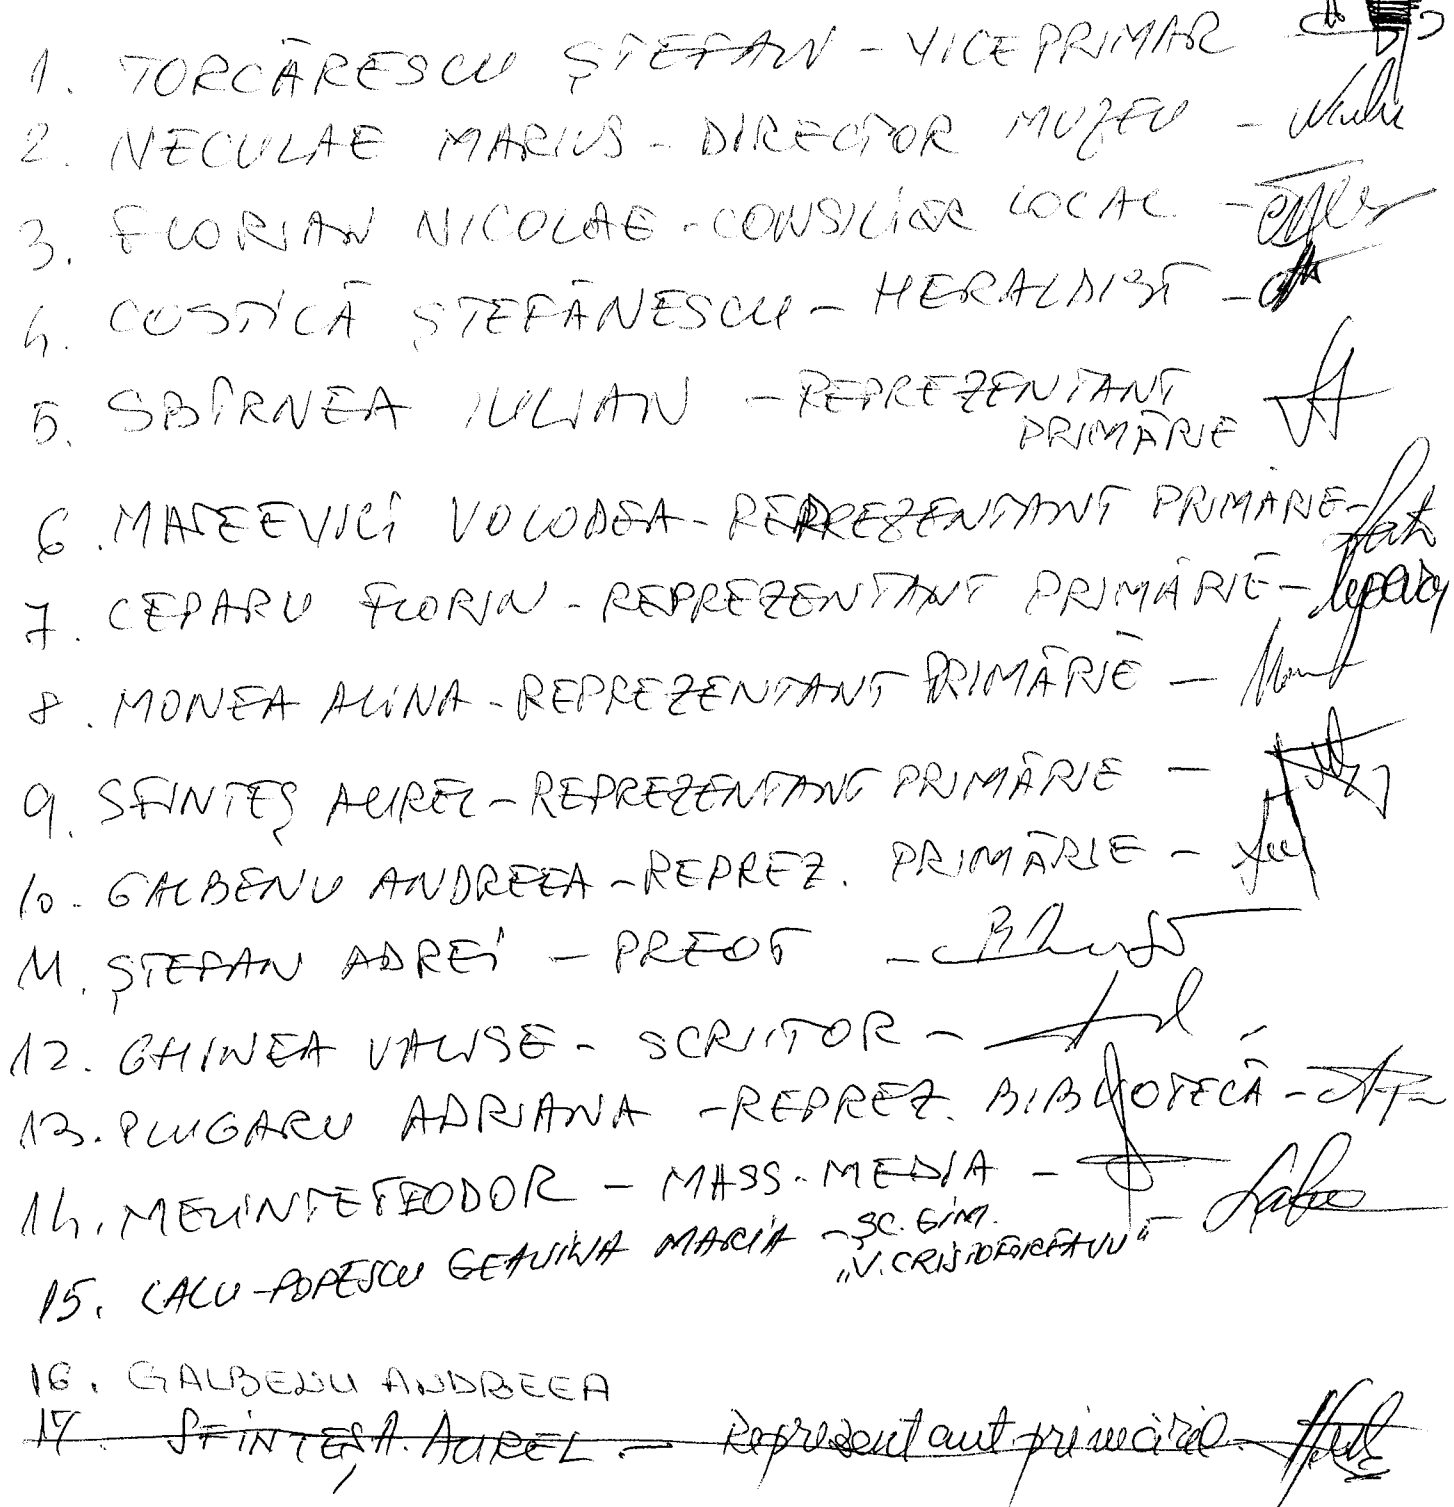 1. TORCĂRESCU ȘTEFAN - VICEPRIMAR
2. NECULAE MARIUS - DIRECTOR MUZEU -
3. FLORIAN NICOLAE - CONSILIER LOCAL -
4. COSTICĂ ȘTEFĂNESCU - HERALDIST -
5. SBÎRNEA IULIAN - REPREZENTANT
PRIMĂRIE
6. MATEEVICI VOLODEA - REPREZENTANT PRIMĂRIE -
7. CEPARU FLORIN - REPREZENTANT PRIMĂRIE -
8. MONEA ALINA - REPREZENTANT PRIMĂRIE -
9. SFINTEȘ AUREL - REPREZENTANT PRIMĂRIE -
10. GALBENU ANDREEA - REPREZ. PRIMĂRIE -
11. ȘTEFAN ADREI - PREOT -
12. GHINEA VALISE - SCRIITOR -
13. PLUGARU ADRIANA - REPREZ. BIBLIOTECĂ -
14. MELINTE TEODOR - MASS-MEDIA -
15. LALU-POPESCU GEANINA MARIA - ȘC. GIM.
„V. CRISTOFOREANU" -
16. GALBENU ANDREEA
17. SFINTEȘ A. AUREL - Reprezentant primărie -